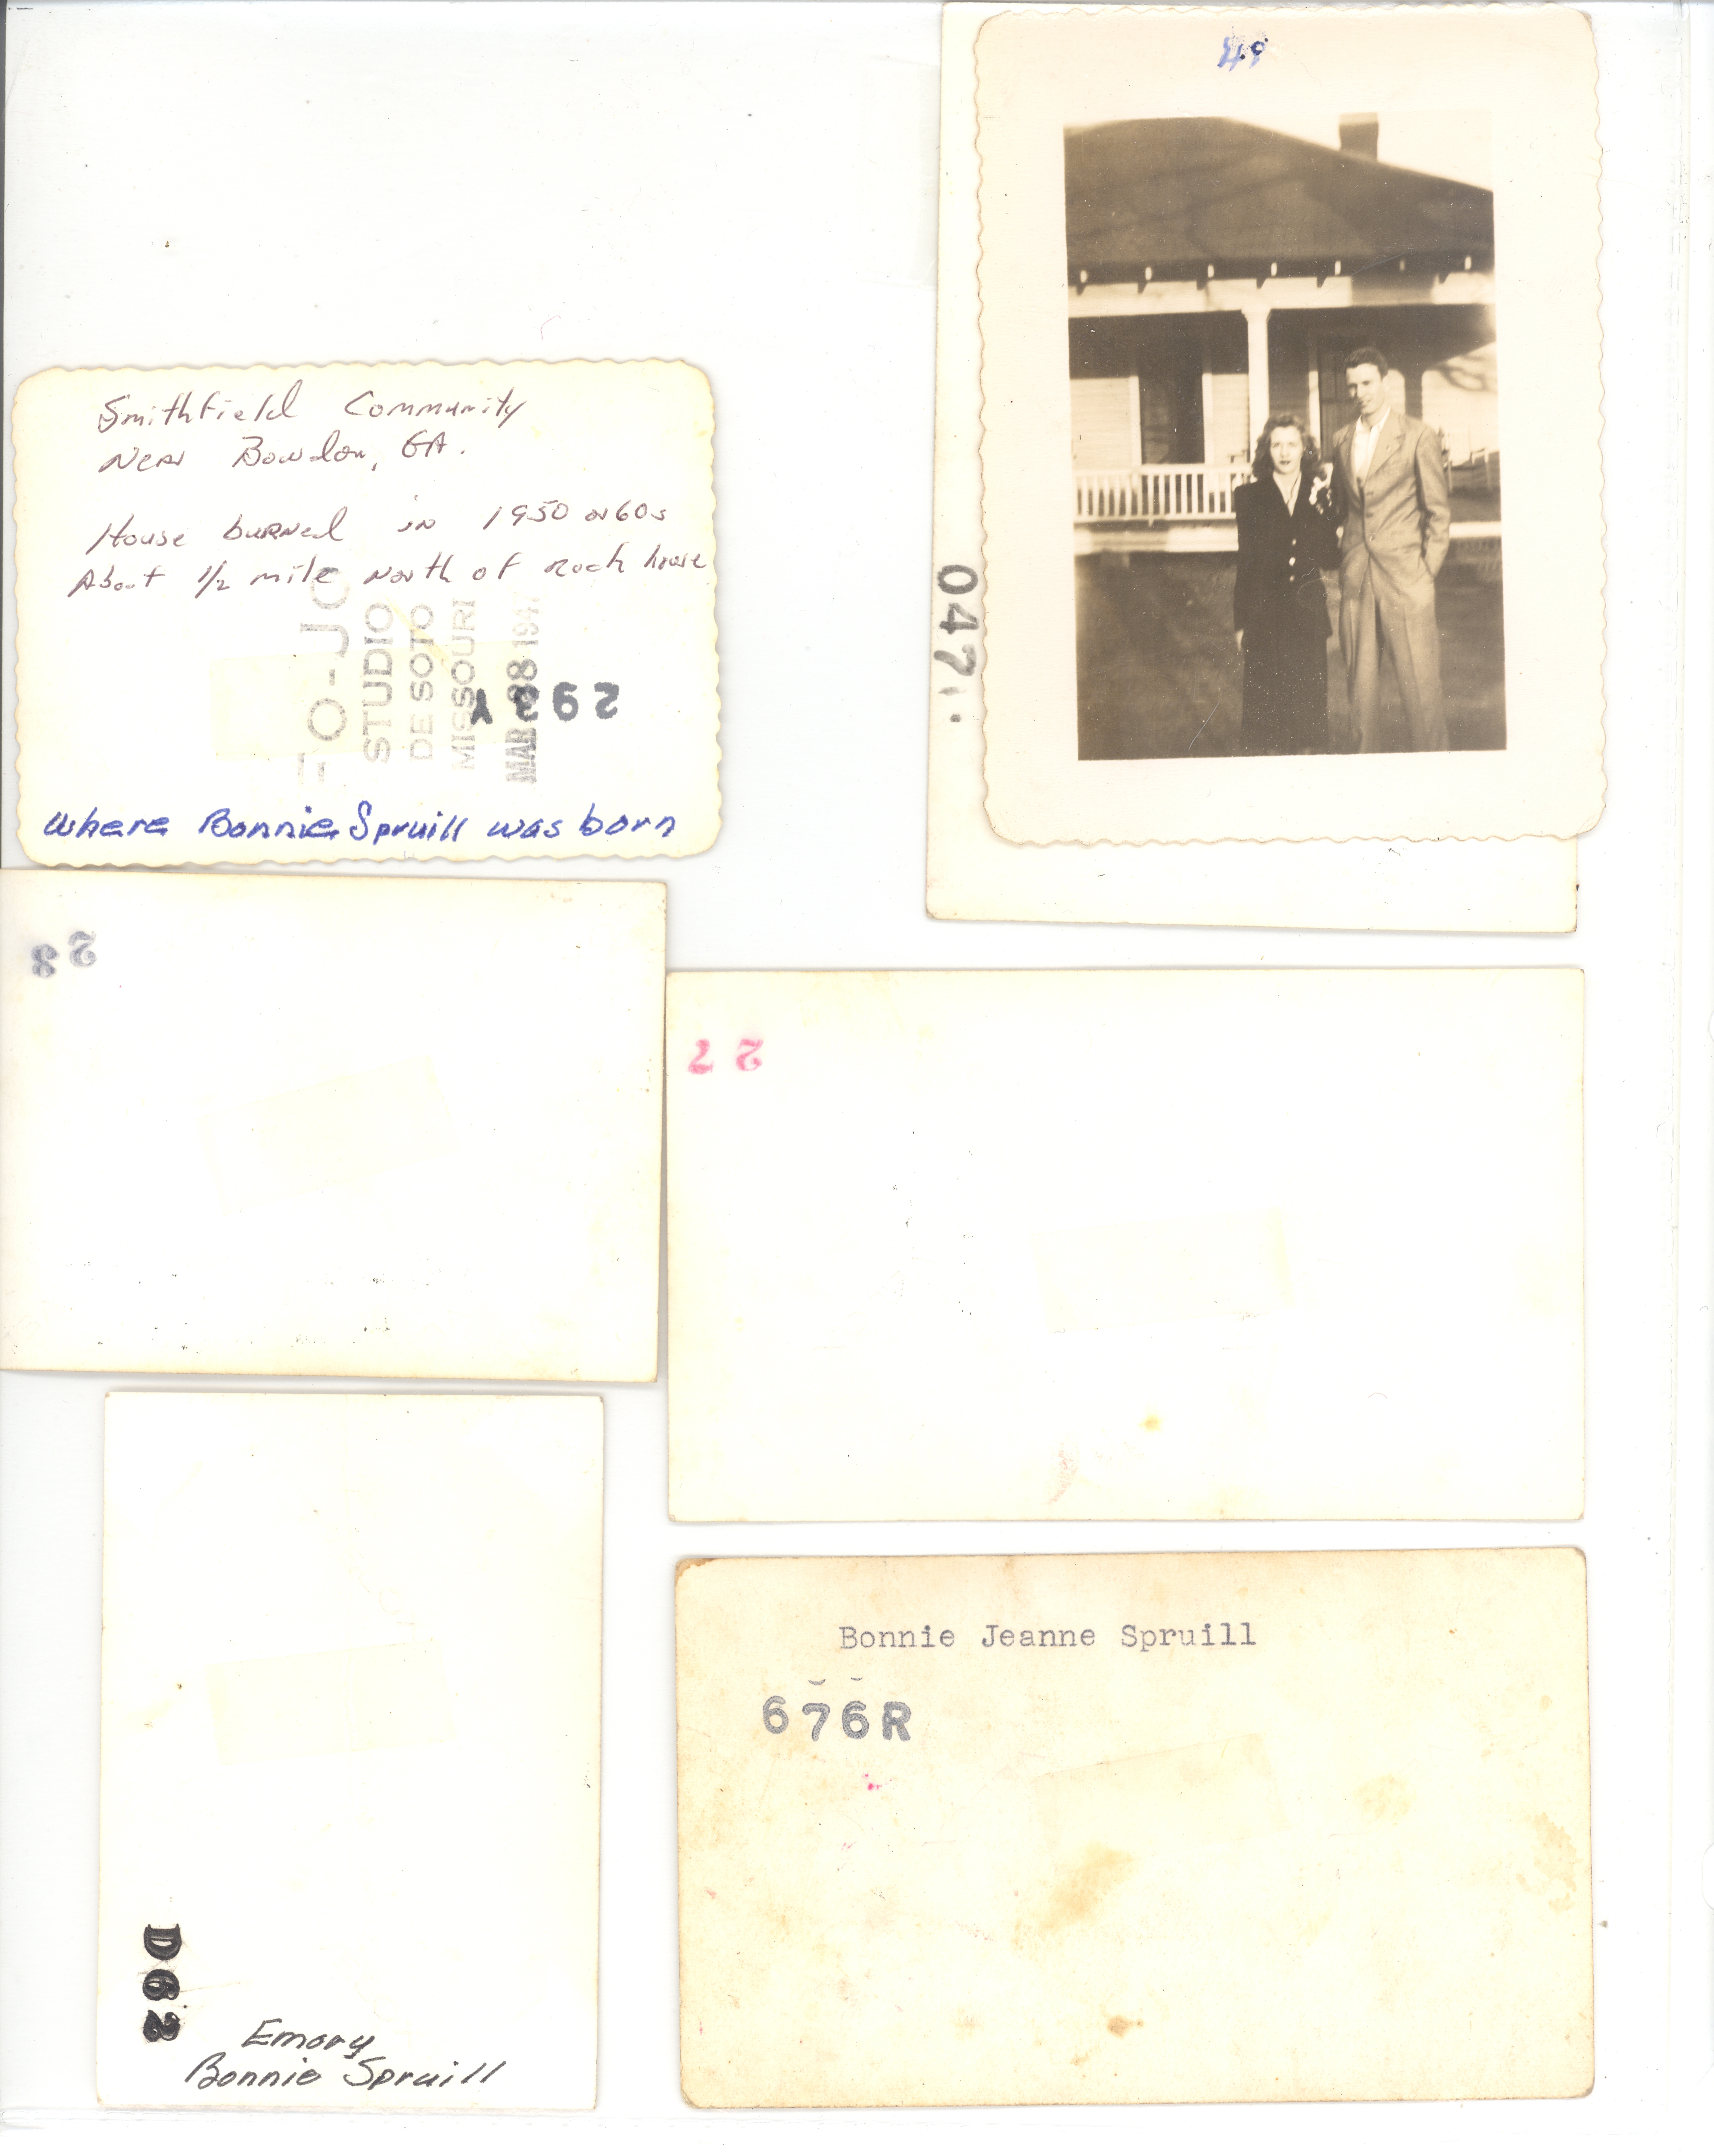 49
Smithfield Community
Near Bowdon, GA.
House burned in 1950 or 60s
About 1/2 mile North of Rock house
FO-JO
STUDIO
DE SOTO
MISSOURI
MAR 
Where Bonnie Spruill was born
047
28
27
Bonnie Jeanne Spruill
676R
D62
Emory
Bonnie Spruill